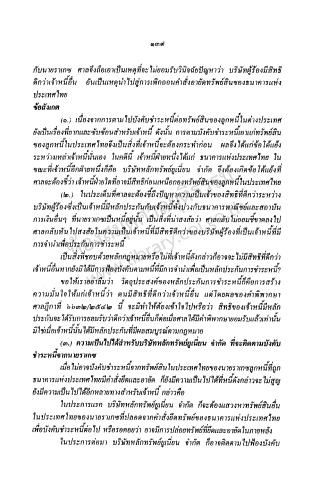 ๑๓๙
กับนายราเกซ ศาลจึงถือเอาเป็นเหตุที่จะไม่ยอมรับวินิจฉัยปัญหาว่า บริษัทผู้ร้องมีสิทธิ
ดีกว่าเจ้าหนี้อื่น อันเป็นเหตุนำไปสู่การเพิกถอนคำสั่งอายัดทรัพย์สินของธนาคารแห่ง
ประเทศไทย
ข้อสังเกต
(๑.) เนื่องจากการตามไปบังคับชำระหนี้ต่อทรัพย์สินของลูกหนี้ในต่างประเทศ
ยังเป็นเรื่องที่ยากและซับซ้อนสำหรับเจ้าหนี้ ดังนั้น การตามบังคับชำระหนี้เอาแก่ทรัพย์สิน
ของลูกหนี้ในประเทศไทยจึงเป็นสิ่งที่เจ้าหนี้จะต้องกระทำก่อน ผลจึงได้แก่ข้อโต้แย้ง
ระหว่างเหล่าเจ้าหนี้นั่นเอง ในคดีนี้ เจ้าหนี้ฝ่ายหนึ่งได้แก่ ธนาคารแห่งประเทศไทย ใน
ขณะที่เจ้าหนี้อีกฝ่ายหนึ่งก็คือ บริษัทหลักทรัพย์ยูเนี่ยน จำกัด จึงต้องเกิดข้อโต้แย้งที่
ศาลจะต้องชี้ว่า เจ้าหนี้ฝ่ายใดที่อาจมีสิทธิก่อนเหนือกองทรัพย์สินของลูกหนี้ในประเทศไทย
(๒.) ในประเด็นที่ศาลจะต้องชี้ถึงปัญหาความเป็นเจ้าของสิทธิที่ดีกว่าระหว่าง
บริษัทผู้ร้องซึ่งเป็นเจ้าหนี้มีหลักประกันกับเจ้าหนี้ทั้งปวงกับธนาคารพาณิชย์และสถาบัน
การเงินอื่นๆ ที่นายราเกซเป็นหนี้อยู่นั้น เป็นสิ่งที่น่าสงสัยว่า ศาลกลับไม่ยอมชี้ขาดลงไป
ศาลกลับหันไปสงสัยในความเป็นเจ้าหนี้ที่มีสิทธิดีกว่าของบริษัทผู้ร้องที่เป็นเจ้าหนี้ที่มี
การจำนำเพื่อประกันการชำระหนี้
เป็นสิ่งที่ชอบด้วยหลักกฎหมายหรือไม่ที่เจ้าหนี้ดังกล่าวก็อาจจะไม่มีสิทธิที่ดีกว่า
เจ้าหนี้อื่นหากยังมิได้มีการฟ้องบังคับตามหนี้ที่มีการจำนำเพื่อเป็นหลักประกันการชำระหนี้?
ขอให้เราอย่าลืมว่า วัตถุประสงค์ของหลักประกันการชำระหนี้ก็คือการสร้าง
ความมั่นใจให้แก่เจ้าหนี้ว่า ตนมีสิทธิดีกว่าเจ้าหนี้อื่น แต่โดยผลของคำพิพากษา
ศาลฎีกาที่ ๖๖๓๑/๒๕๔๑ นี้ จะมิทำให้ต้องเข้าใจไปหรือว่า สิทธิของเจ้าหนี้มีหลัก
ประกันจะได้รับการยอมรับว่าดีกว่าเจ้าหนี้อื่นก็ต่อเมื่อศาลได้มีคำพิพากษายอมรับแล้วเท่านั้น
มิใช่เมื่อเจ้าหนี้นั้นได้มีหลักประกันที่มีผลสมบูรณ์ตามกฎหมาย
(๓.) ความเป็นไปได้สำหรับบริษัทหลักทรัพย์ยูเนี่ยน จำกัด ที่จะติดตามบังคับ
ชำระหนี้จากนายราเกซ
เมื่อไม่อาจบังคับชำระหนี้จากทรัพย์สินในประเทศไทยของนายราเกซลูกหนี้ที่ถูก
ธนาคารแห่งประเทศไทยมีคำสั่งยึดและอายัด ก็ยังมีความเป็นไปได้ที่หนี้ดังกล่าวจะไม่สูญ
ยังมีความเป็นไปได้อีกหลายทางสำหรับเจ้าหนี้ กล่าวคือ
ในประการแรก บริษัทหลักทรัพย์ยูเนี่ยน จำกัด ก็จะต้องแสวงหาทรัพย์สินอื่น
ในประเทศไทยของนายราเกซที่ปลอดจากคำสั่งยึดทรัพย์ของธนาคารแห่งประเทศไทย
เพื่อบังคับชำระหนี้ต่อไป หรือรอคอยว่า อาจมีการปล่อยทรัพย์ที่ยึดและอายัดในภายหลัง
ในประการต่อมา บริษัทหลักทรัพย์ยูเนี่ยน จำกัด ก็อาจติดตามไปฟ้องบังคับ